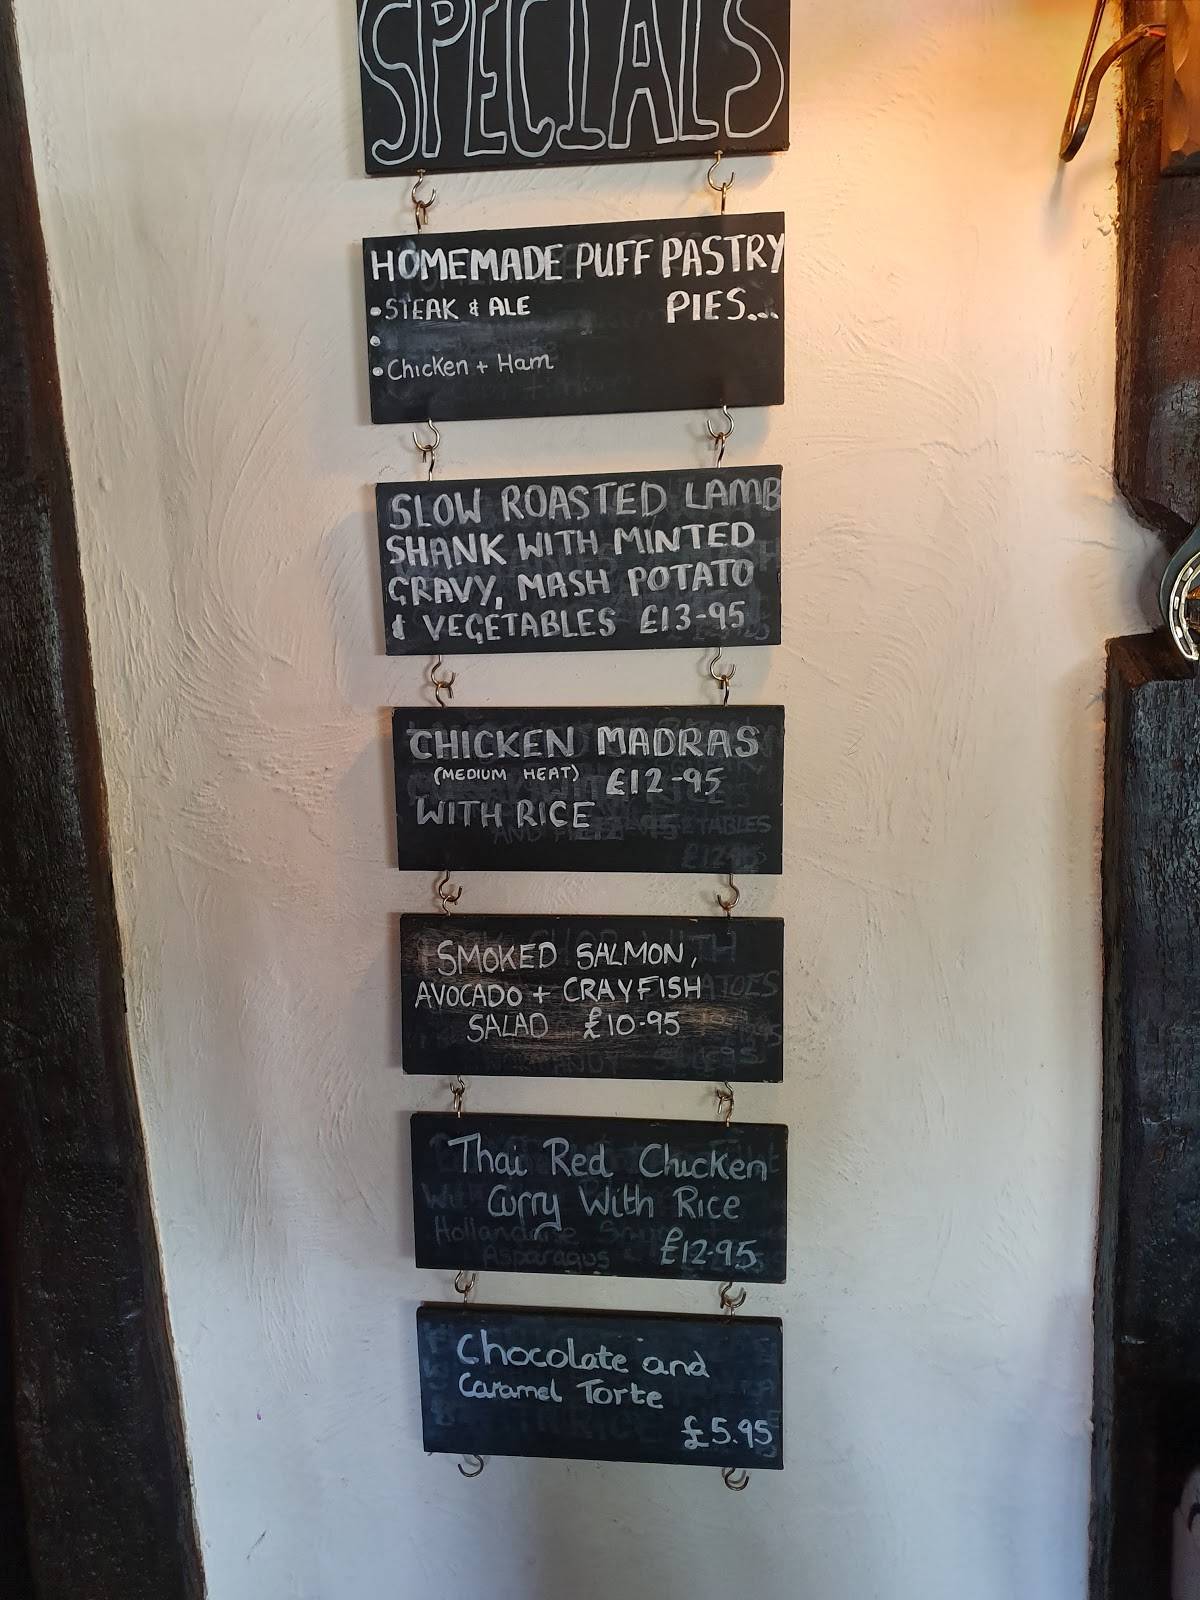 SPECIALS
HOMEMADE PUFF PASTRY
• STEAK & ALE PIES...
•
• Chicken + Ham
SLOW ROASTED LAMB
SHANK WITH MINTED
GRAVY, MASH POTATO
& VEGETABLES £13-95
CHICKEN MADRAS
(MEDIUM HEAT) £12-95
WITH RICE
SMOKED SALMON,
AVOCADO + CRAYFISH
SALAD £10-95
Thai Red Chicken
Curry With Rice
£12-95
Chocolate and
Caramel Torte
£5.95